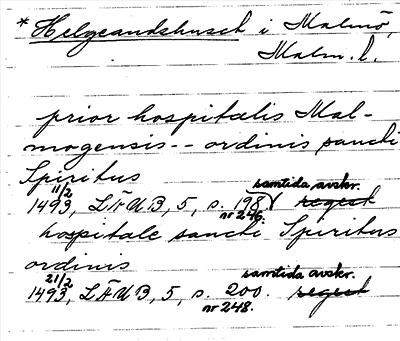 * Helgeandshuset i Malmö,
Malm. l.
prior hospitalis Mal-
mogensis -- ordinis sancti
Spiritus
11/2 samtida avskr.
1493, LÄUB, 5, s. 198. regest
nr 246.
hospitale sancti Spiritus
ordinis
21/2 samtida avskr.
1493, LÄUB, 5, s. 200. regest
nr 248.